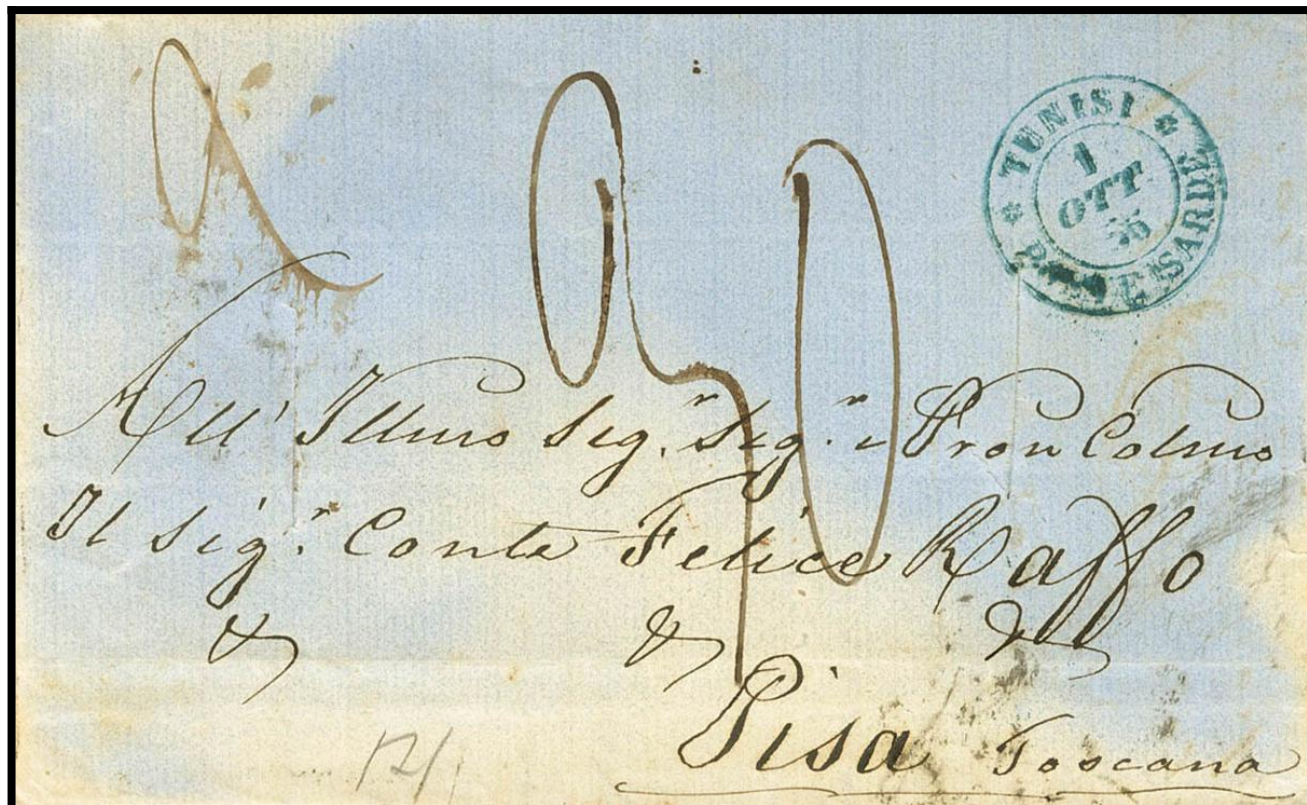 TUNISI
1
OTT
56
POSTE SARDE
All' Illmo Sig.r Sig.r e Pron Colmo
Il Sig.r Conte Felice Raffo
& & &
Pisa Toscana